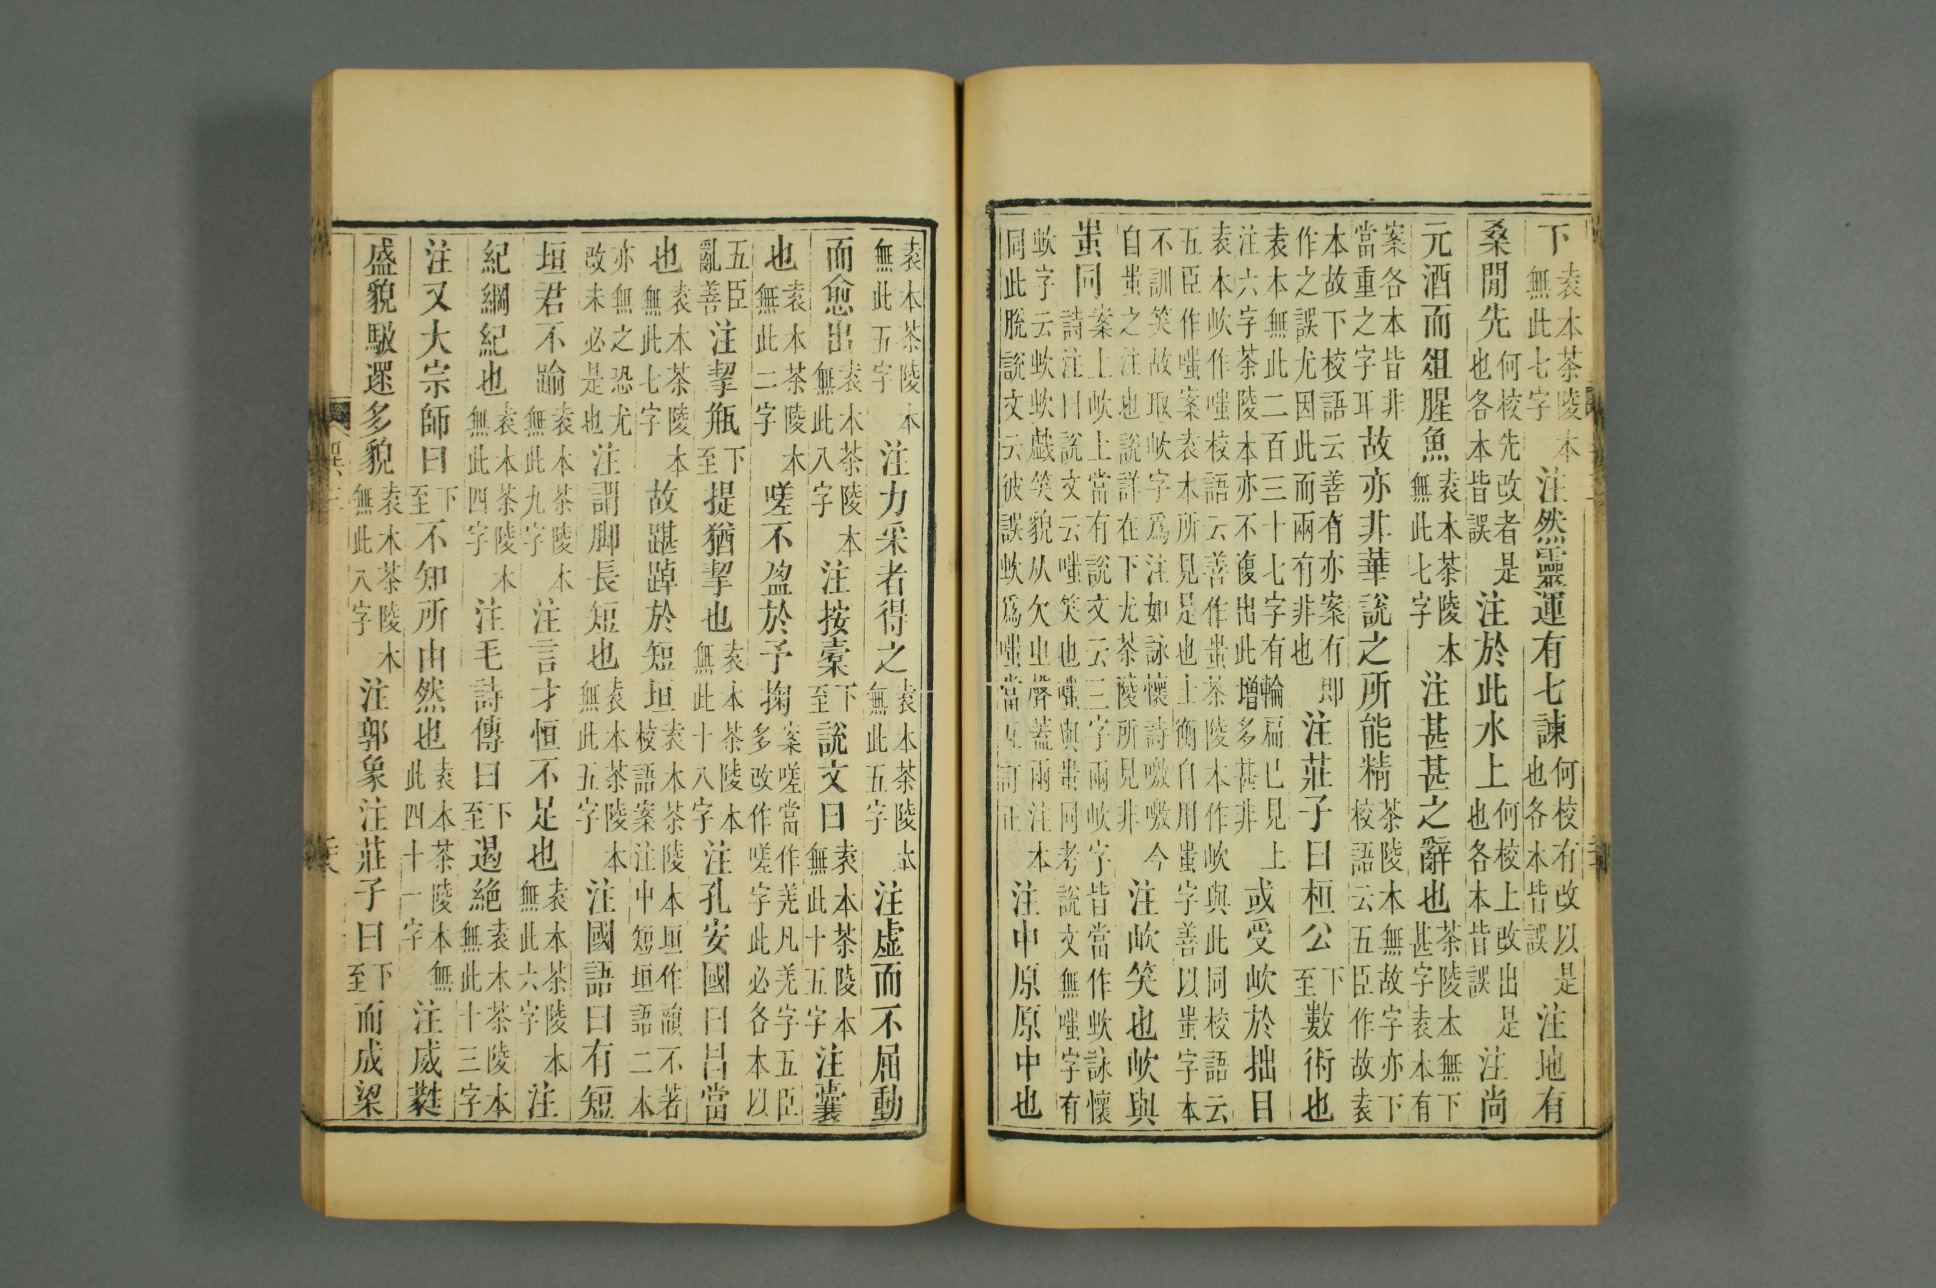 下袁本茶陵本無此七字注然靈運有七諫何校有改以是也各本皆誤注地有
桑閒先何校先改者是也各本皆誤注於此水上何校上改出是也各本皆誤注尚
元酒而俎腥魚袁本茶陵本無此七字注甚甚之辭也茶陵本無下甚字袁本有
案各本皆非當重之字耳故亦非華說之所能精茶陵本無故字亦下校語云五臣作故袁
本故下校語云善有亦案有即作之誤尤因此而兩有非也注莊子曰桓公下至數術也
袁本無此二百三十七字有輪扁已見上注六字茶陵本亦不復出此增多甚非或受㰞於拙目
袁本㰞作嗤校語云善作蚩茶陵本作㰞與此同校語云五臣作嗤案袁本所見是也士衡自用蚩字善以蚩字本
不訓笑故取㰞字爲注如詠懷詩噭噭今自蚩之注也說詳在下尤茶陵所見非注㰞笑也㰞與
蚩同案上㰞上當有說文云三字兩㰞字皆當作㰞詠懷詩注曰說文云嗤笑也嗤與蚩同考說文無嗤字有
㰞字云㰞㰞戯笑貌从欠㞢聲蓋兩注本同此脫說文云彼誤㰞爲嗤當互訂正注中原原中也
袁本茶陵本無此五字注力采者得之袁本茶陵本無此五字注虛而不屈動
而愈出袁本茶陵本無此八字注按橐下至說文曰袁本茶陵本無此十五字注囊
也袁本茶陵本無此二字嗟不盈於予掬案嗟當作羌凡羌字五臣多改作嗟字此必各本以
五臣亂善注挈瓶下至提猶挈也袁本茶陵本無此十八字注孔安國曰昌當
也袁本茶陵本無此七字故踸踔於短垣袁本茶陵本垣作韻不著校語案注中短垣語二本
亦無之恐尤改未必是也注謂脚長短也袁本茶陵本無此五字注國語曰有短
垣君不踰袁本茶陵本無此九字注言才恒不足也袁本茶陵本無此六字注
紀綱紀也袁本茶陵本無此四字注毛詩傳曰下至遏絶袁本茶陵本無此十三字
注又大宗師曰下至不知所由然也袁本茶陵本無此四十一字注威蕤
盛貌馺遝多貌袁本茶陵本無此八字注郭象注莊子曰下至而成梁